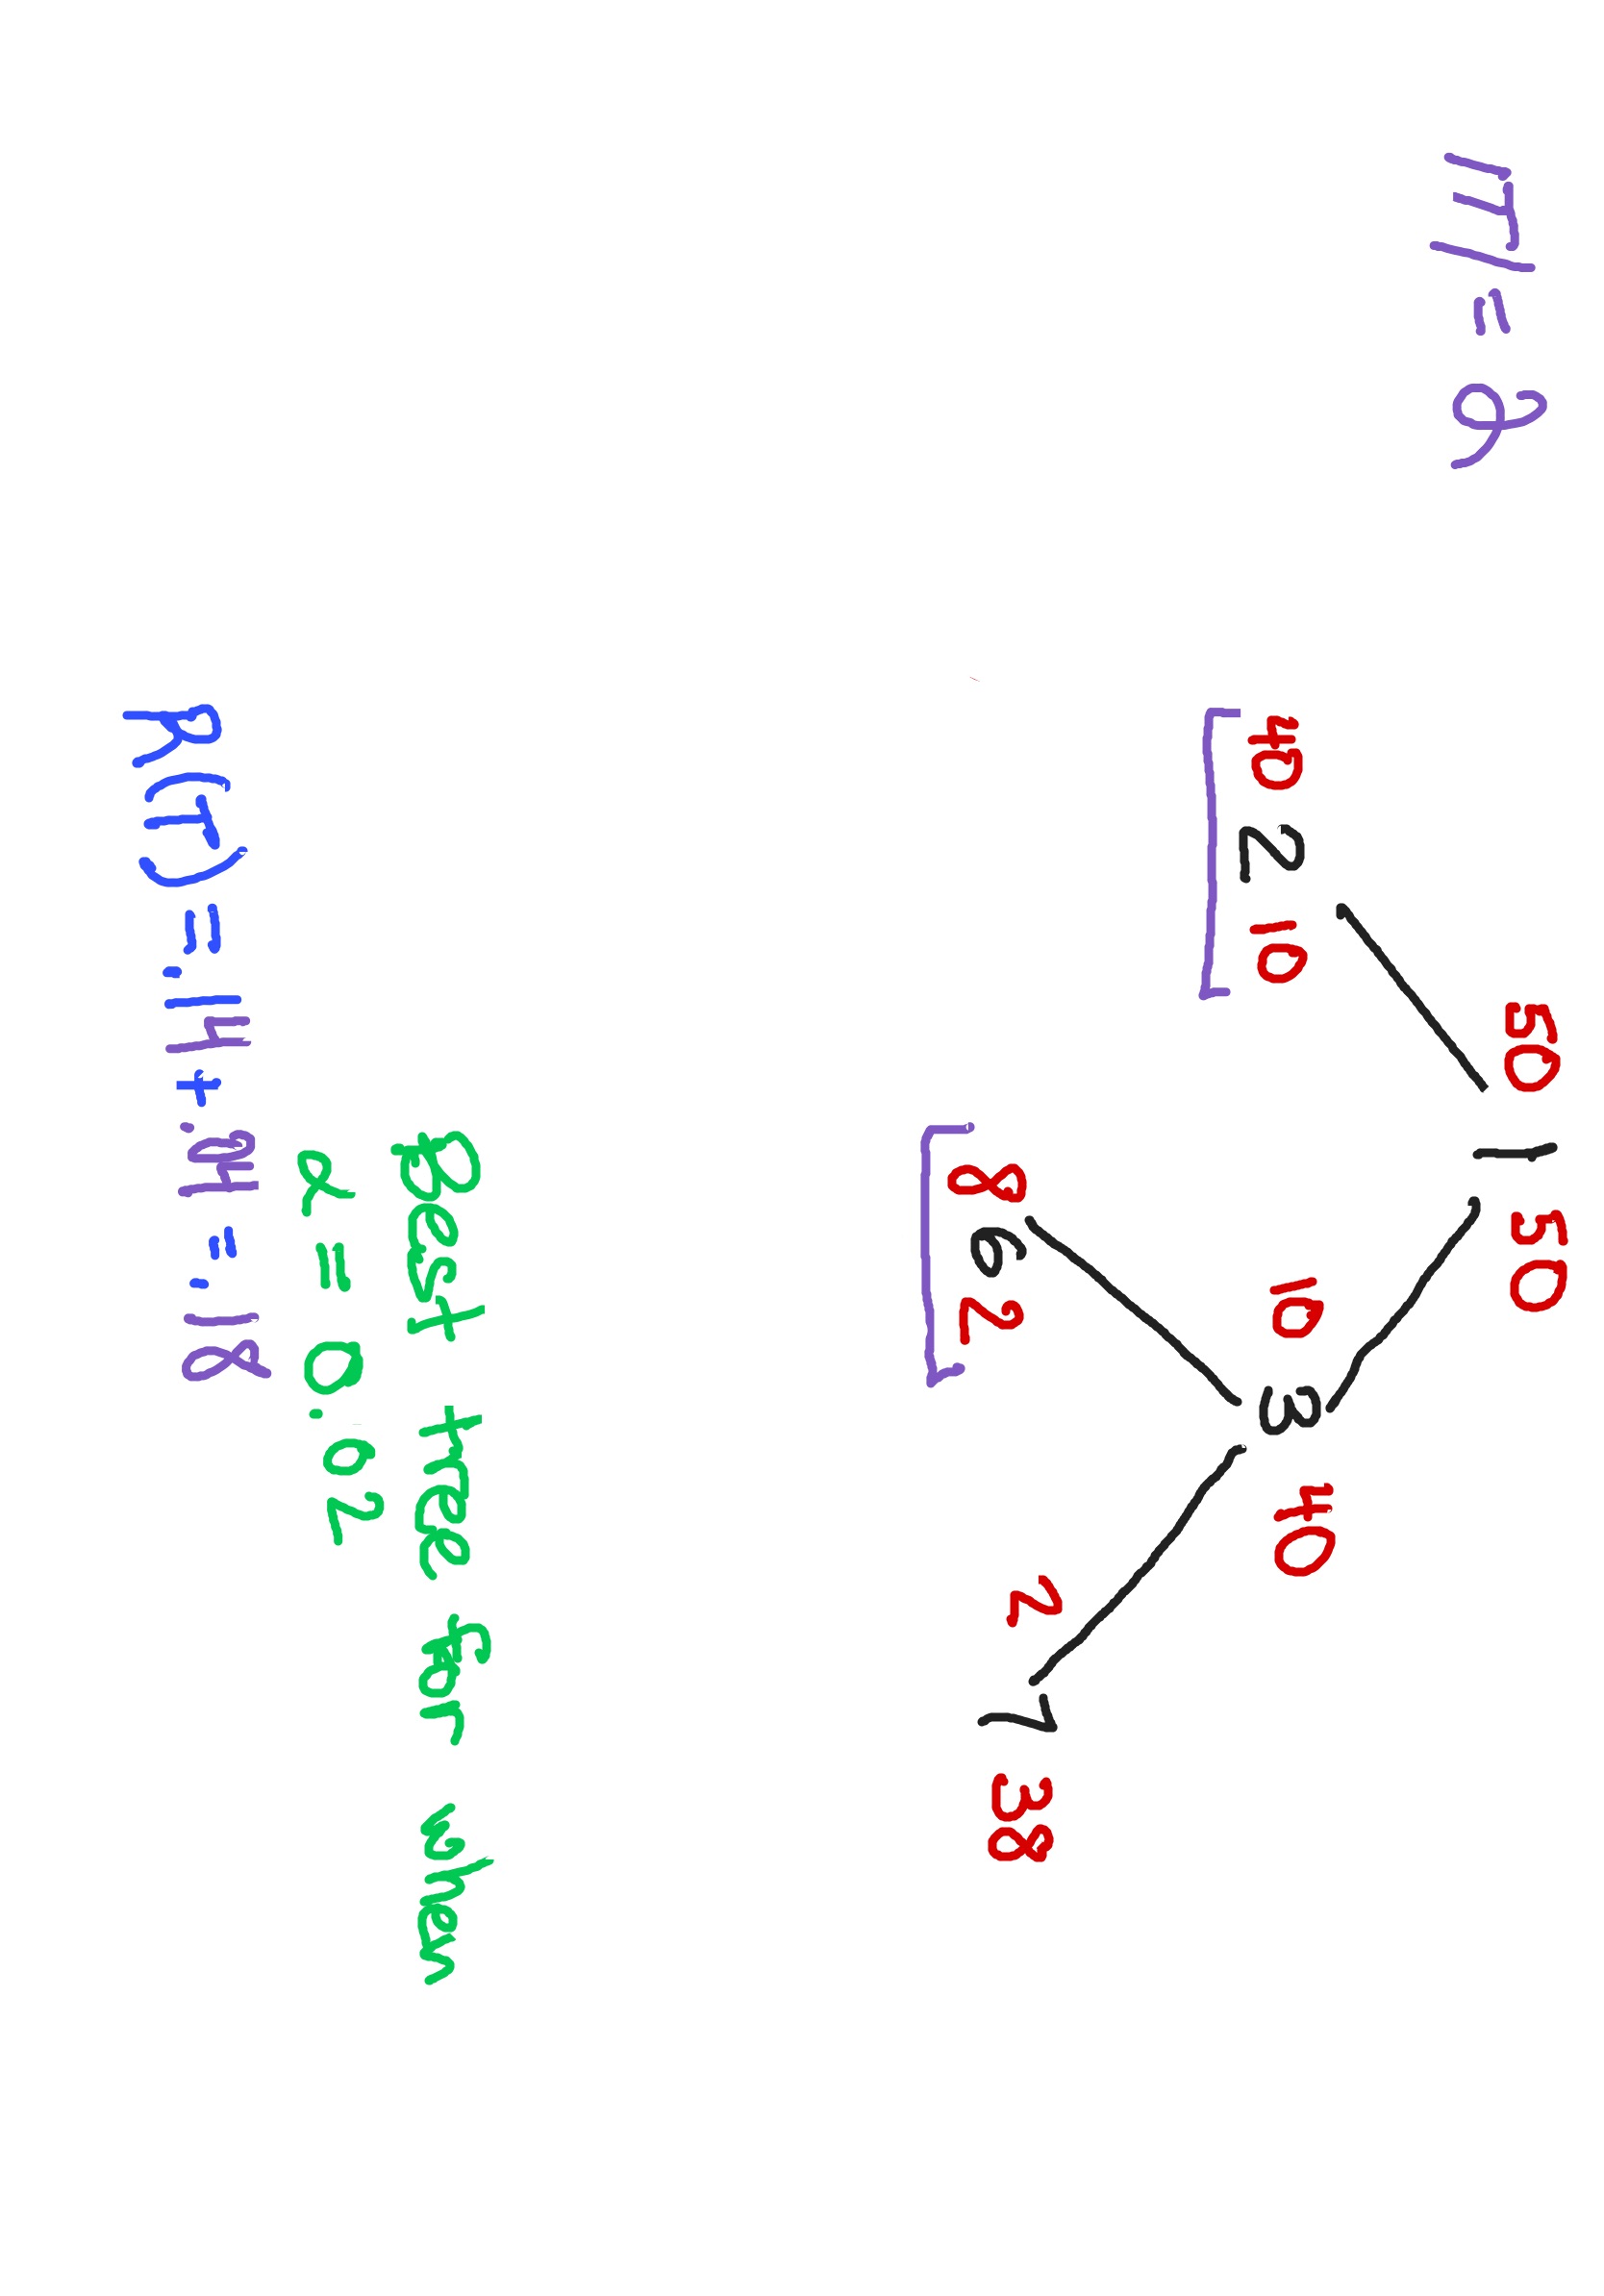 |T| = 2
50 1 50
40 2 10 10 3 40
8 6 2 2 7 38
Best tree for when
α = 0.02
R(T) = .14 + .04 = .18